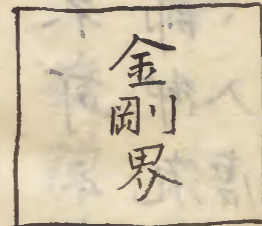 金剛界